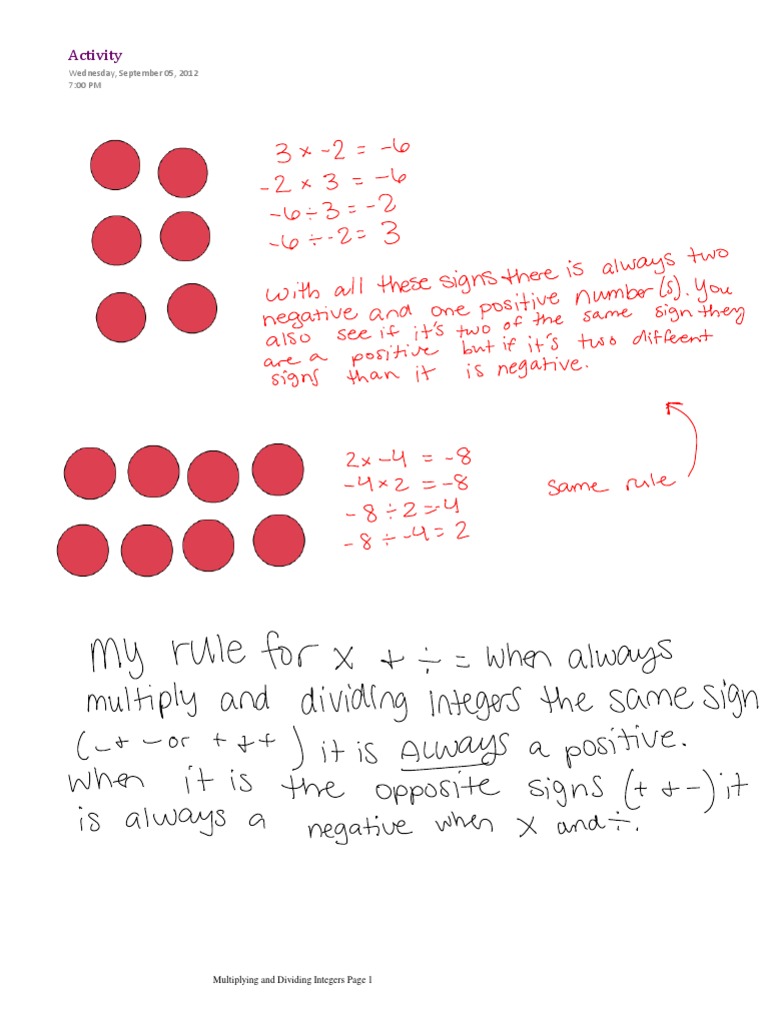 Activity
Wednesday, September 05, 2012
7:00 PM
3 × -2 = -6
-2 × 3 = -6
-6 ÷ 3 = -2
-6 ÷ -2 = 3
With all these signs there is always two
negative and one positive number(s). You
also see if it's two of the same sign they
are a positive but if it's two diffeent
signs than it is negative.
2x -4 = -8
-4 × 2 = -8
-8 ÷ 2 = -4
-8 ÷ -4 = 2
same rule
My rule for x + ÷ = when always
multiply and dividing integers the same sign
(- + - or + + +) it is ALWAYS a positive.
When it is the opposite signs (+ + -) it
is always a negative when x and ÷.
Multiplying and Dividing Integers Page 1